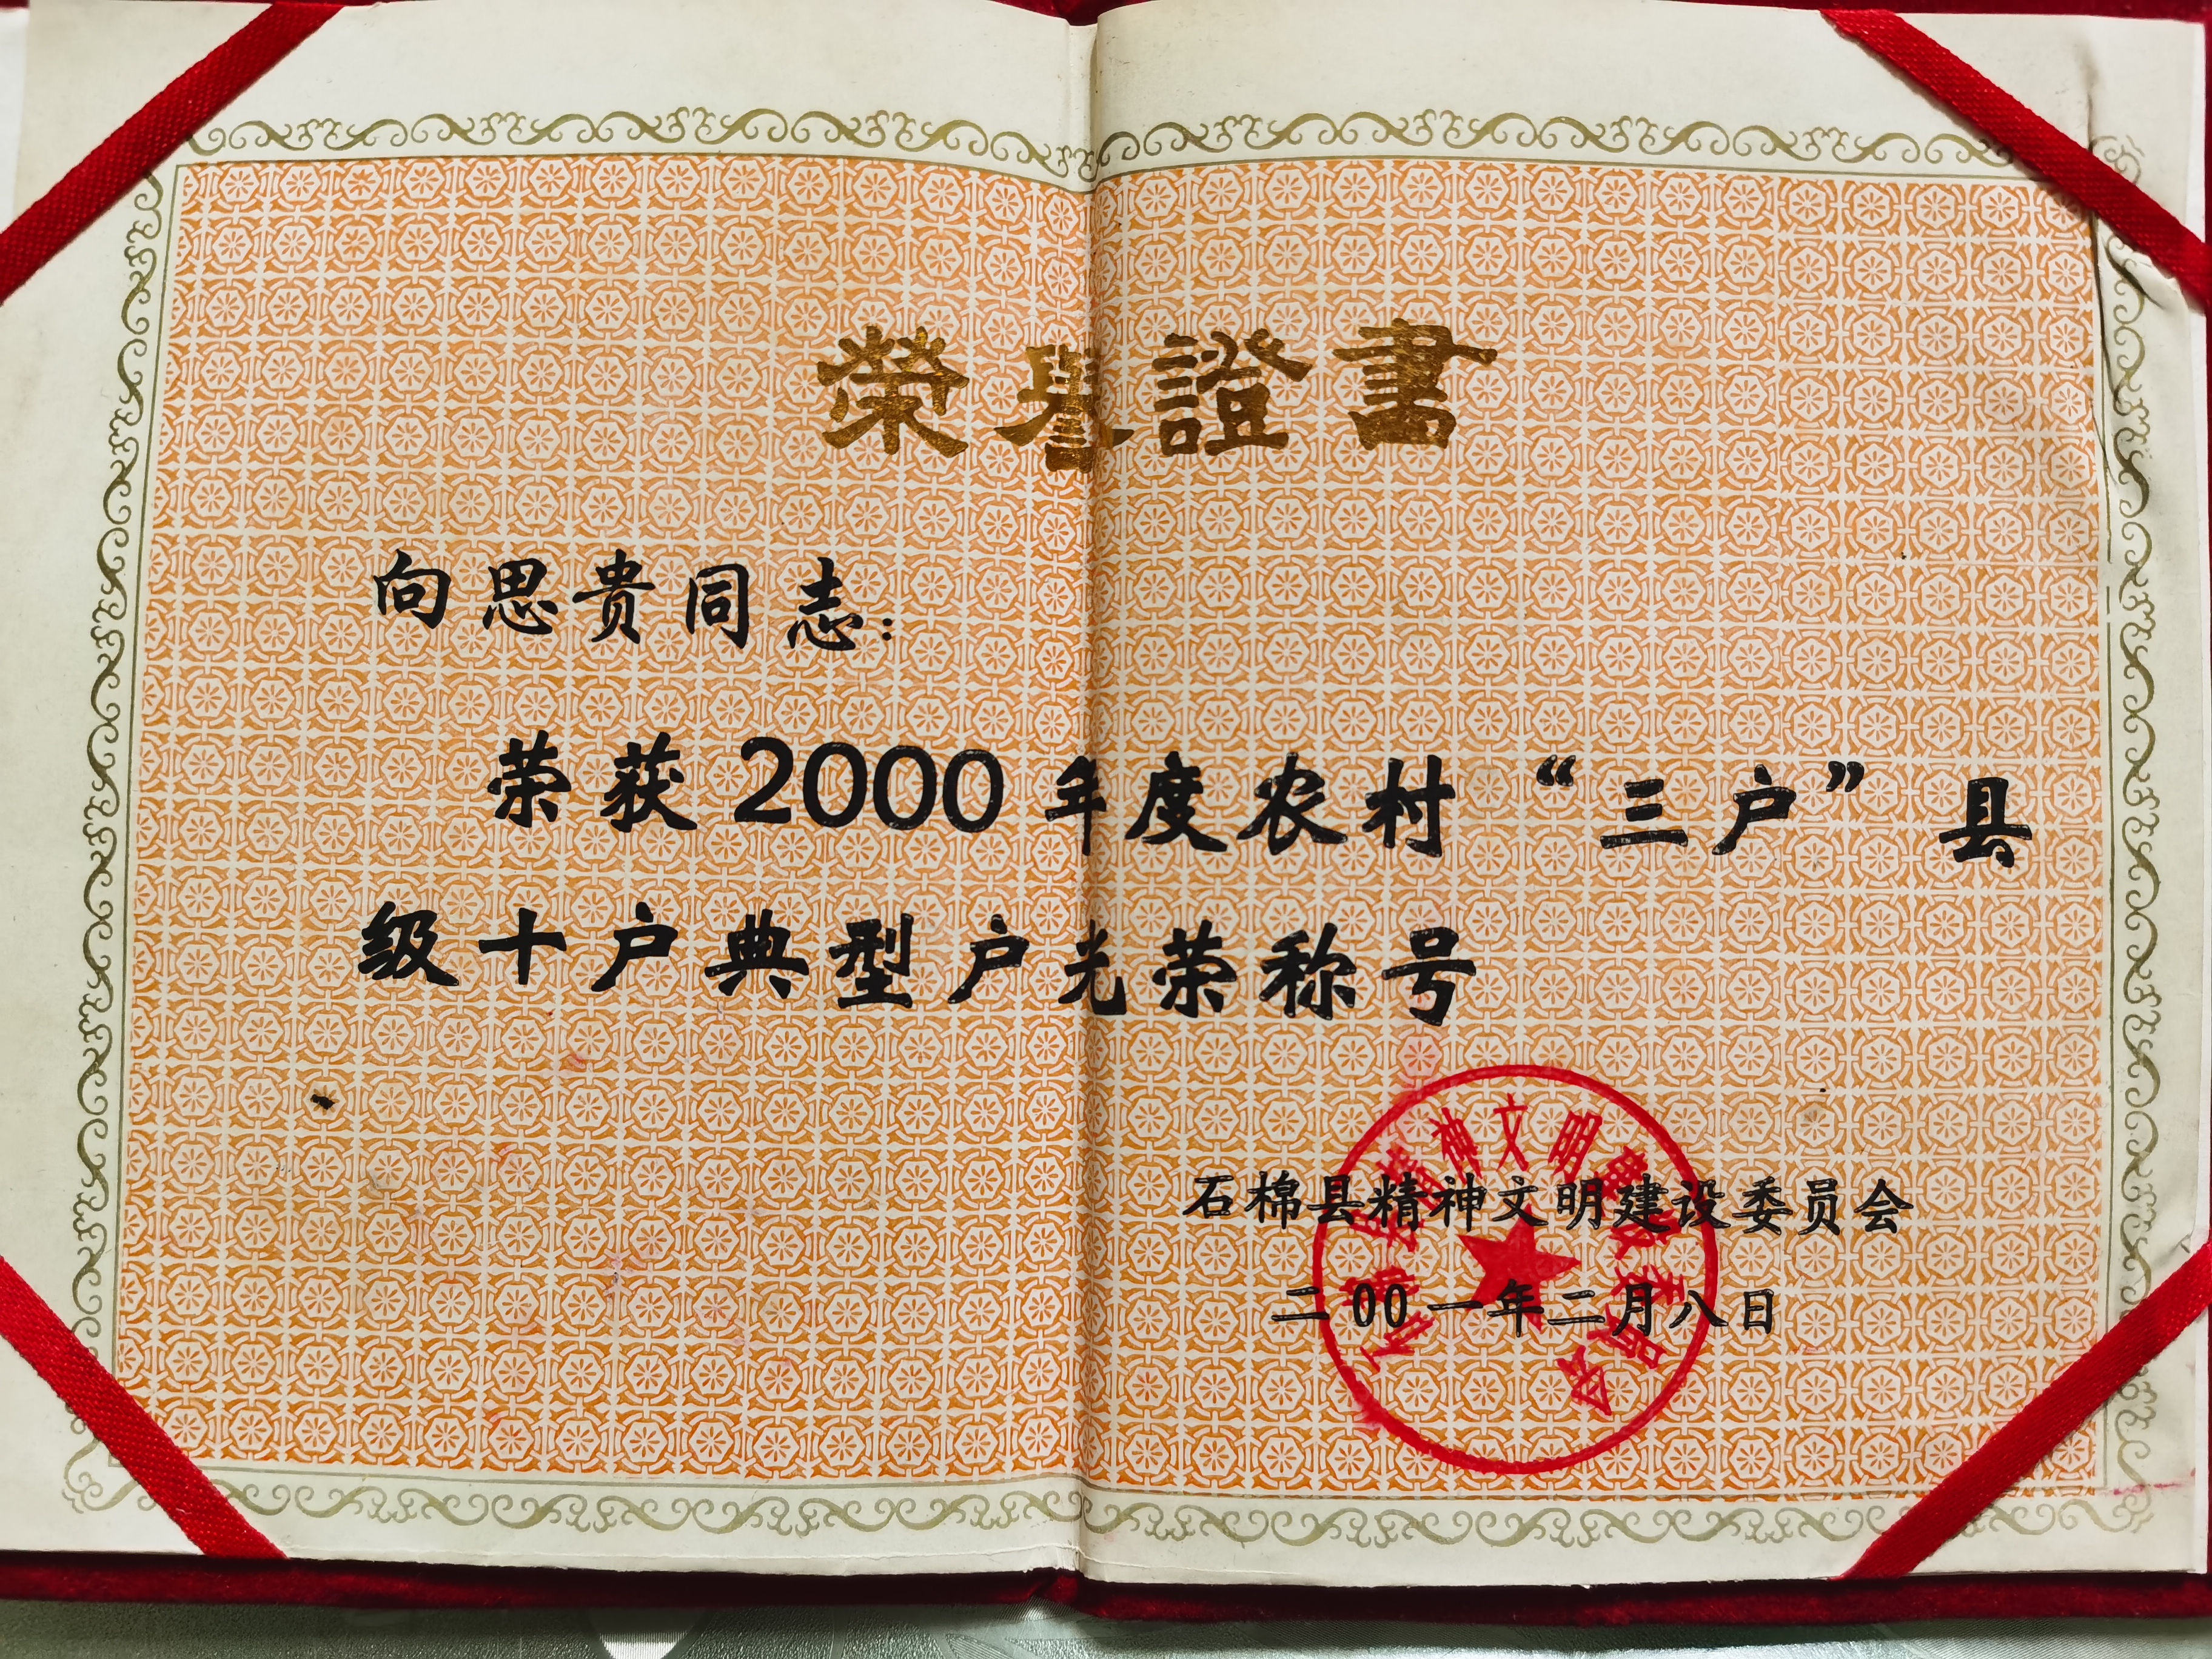 榮譽證書
向思贵同志：
荣获2000年度农村“三户”县
级十户典型户光荣称号
石棉县精神文明建设委员会
二00一年二月八日
石棉县精神文明建设委员会